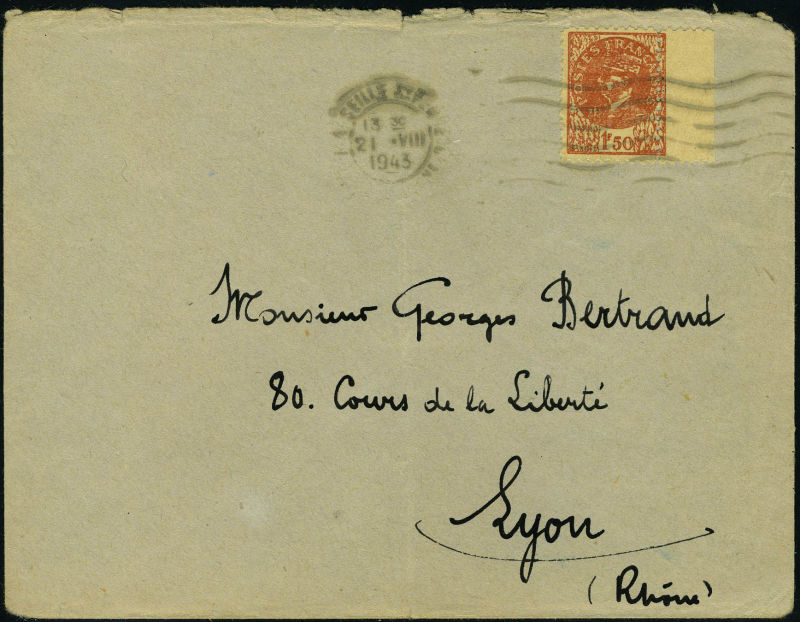 POSTES FRANÇAISES
1F50
13 30
21 -VIII
1943
Monsieur Georges Bertrand
80. Cours de la Liberté
Lyon
(Rhône)